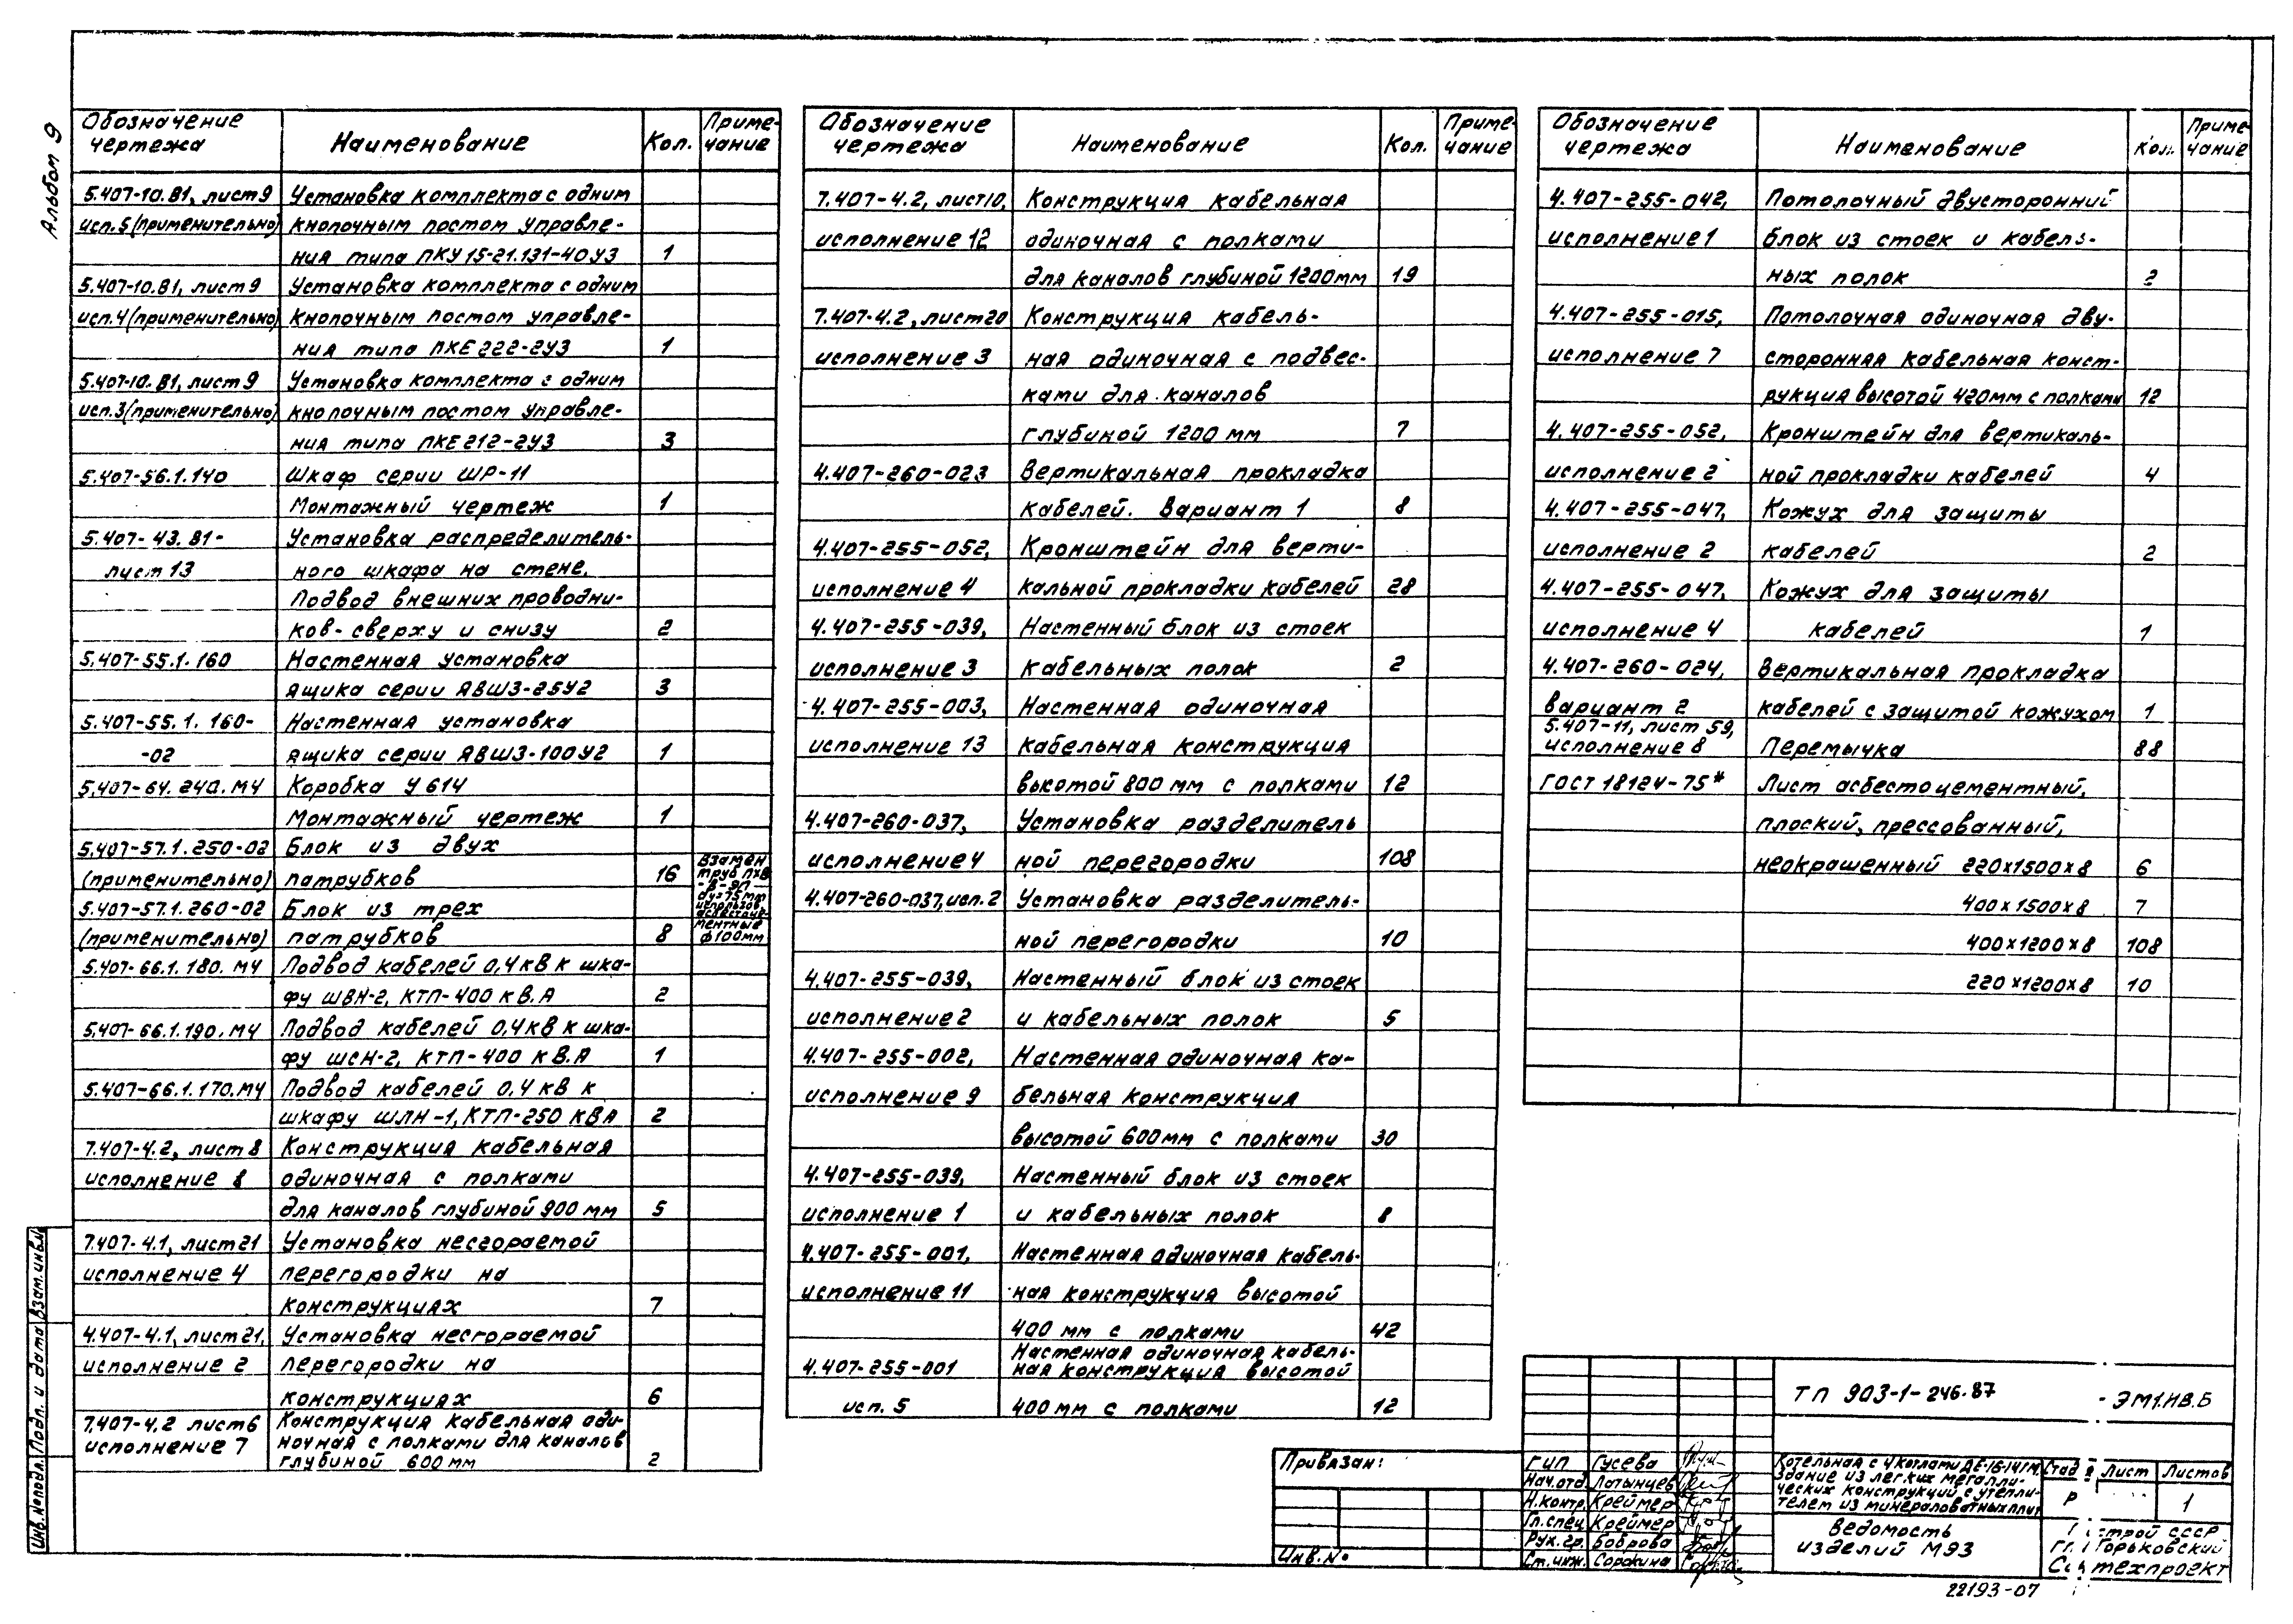 Альбом 9
Обозначение чертежа Наименование Кол. Приме-чание
5.407-10.81, лист 9 Установка комплекта с одним
исп. 5 (применительно) кнопочным постом управле-
ния типа ПКУ 15-21.131-40У3 1
5.407-10.81, лист 9 Установка комплекта с одним
исп. 4 (применительно) кнопочным постом управле-
ния типа ПКЕ 222-2У3 1
5.407-10.81, лист 9 Установка комплекта с одним
исп. 3 (применительно) кнопочным постом управле-
ния типа ПКЕ 212-2У3 3
5.407-56.1.140 Шкаф серии ШР-11
Монтажный чертеж 1
5.407-43.81- Установка распределитель-
лист 13 ного шкафа на стене.
Подвод внешних проводни-
ков-сверху и снизу 2
5.407-55.1.160 Настенная установка
ящика серии ЯВШ3-25У2 3
5.407-55.1.160- Настенная установка
-02 ящика серии ЯВШ3-100У2 1
5.407-64.240.МЧ Коробка У614
Монтажный чертеж 1
5.407-57.1.250-02 Блок из двух
(применительно) патрубков 16
5.407-57.1.260-02 Блок из трех
(применительно) патрубков 8
взамен
труб ПХВ
-В-ЭП
dу=75мм
использов.
асбестоце-
ментные
ф100мм
5.407-66.1.180.МЧ Подвод кабелей 0,4кВ к шка-
фу ШВН-2, КТП-400 кВ.А 2
5.407-66.1.190.МЧ Подвод кабелей 0,4кВ к шка-
фу ШСН-2, КТП-400 кВ.А 1
5.407-66.1.170.МЧ Подвод кабелей 0,4 кВ к
шкафу ШЛН-1, КТП-250 кВА 2
7.407-4.2, лист 8 Конструкция кабельная
исполнение 8 одиночная с полками
для каналов глубиной 900 мм 5
7.407-4.1, лист 21 Установка несгораемой
исполнение 4 перегородки на
конструкциях 7
4.407-4.1, лист 21, Установка несгораемой
исполнение 2 перегородки на
конструкциях 6
7.407-4.2 лист 6 Конструкция кабельная оди-
исполнение 7 ночная с полками для каналов
глубиной 600 мм 2
Обозначение чертежа Наименование Кол. Приме-чание
7.407-4.2, лист 10, Конструкция кабельная
исполнение 12 одиночная с полками
для каналов глубиной 1200мм 19
7.407-4.2, лист 20 Конструкция кабель-
исполнение 3 ная одиночная с подвес-
ками для каналов
глубиной 1200 мм 7
4.407-260-023 Вертикальная прокладка
кабелей. Вариант 1 8
4.407-255-052, Кронштейн для верти-
исполнение 4 кальной прокладки кабелей 28
4.407-255-039, Настенный блок из стоек
исполнение 3 кабельных полок 2
4.407-255-003, Настенная одиночная
исполнение 13 кабельная конструкция
высотой 800 мм с полками 12
4.407-260-037, Установка разделитель
исполнение 4 ной перегородки 108
4.407-260-037, исп. 2 Установка разделитель-
ной перегородки 10
4.407-255-039, Настенный блок из стоек
исполнение 2 и кабельных полок 5
4.407-255-002, Настенная одиночная ка-
исполнение 9 бельная конструкция
высотой 600мм с полками 30
4.407-255-039, Настенный блок из стоек
исполнение 1 и кабельных полок 8
4.407-255-001, Настенная одиночная кабель-
исполнение 11 ная конструкция высотой
400 мм с полками 42
Настенная одиночная кабель-
4.407-255-001 ная конструкция высотой
исп. 5 400 мм с полками 12
Обозначение чертежа Наименование Кол. Приме-чание
4.407-255-042, Потолочный двусторонний
исполнение 1 блок из стоек и кабель-
ных полок 2
4.407-255-015, Потолочная одиночная дву-
исполнение 7 сторонняя кабельная конст-
рукция высотой 420мм с полками 12
4.407-255-052, Кронштейн для вертикаль-
исполнение 2 ной прокладки кабелей 4
4.407-255-047, Кожух для защиты
исполнение 2 кабелей 2
4.407-255-047, Кожух для защиты
исполнение 4 кабелей 1
4.407-260-024, Вертикальная прокладка
вариант 2 кабелей с защитой кожухом 1
5.407-11, лист 59,
исполнение 8 Перемычка 88
ГОСТ 18124-75* Лист асбестоцементный,
плоский, прессованный,
неокрашенный 220х1500х8 6
400х1500х8 7
400х1200х8 108
220х1200х8 10
Инв. № подл. Подп. и дата Взам. инв. №
Привязан:
Инв. №
ТП 903-1-246.87 -ЭМ1.НВ.Б
ГИП Гусева
Нач.отд. Латынцев
Н.контр. Креймер
Гл.спец. Креймер
Рук.гр. Боброва
Ст.инж. Сорокина
Котельная с 4 котлами ДЕ-16-14ГМ.
Здание из легких металли-
ческих конструкций с утепли-
телем из минераловатных плит
Лист Листов
Р 1
Ведомость
изделий МЭЗ
строй СССР
Горьковский
техпроект
22193-07